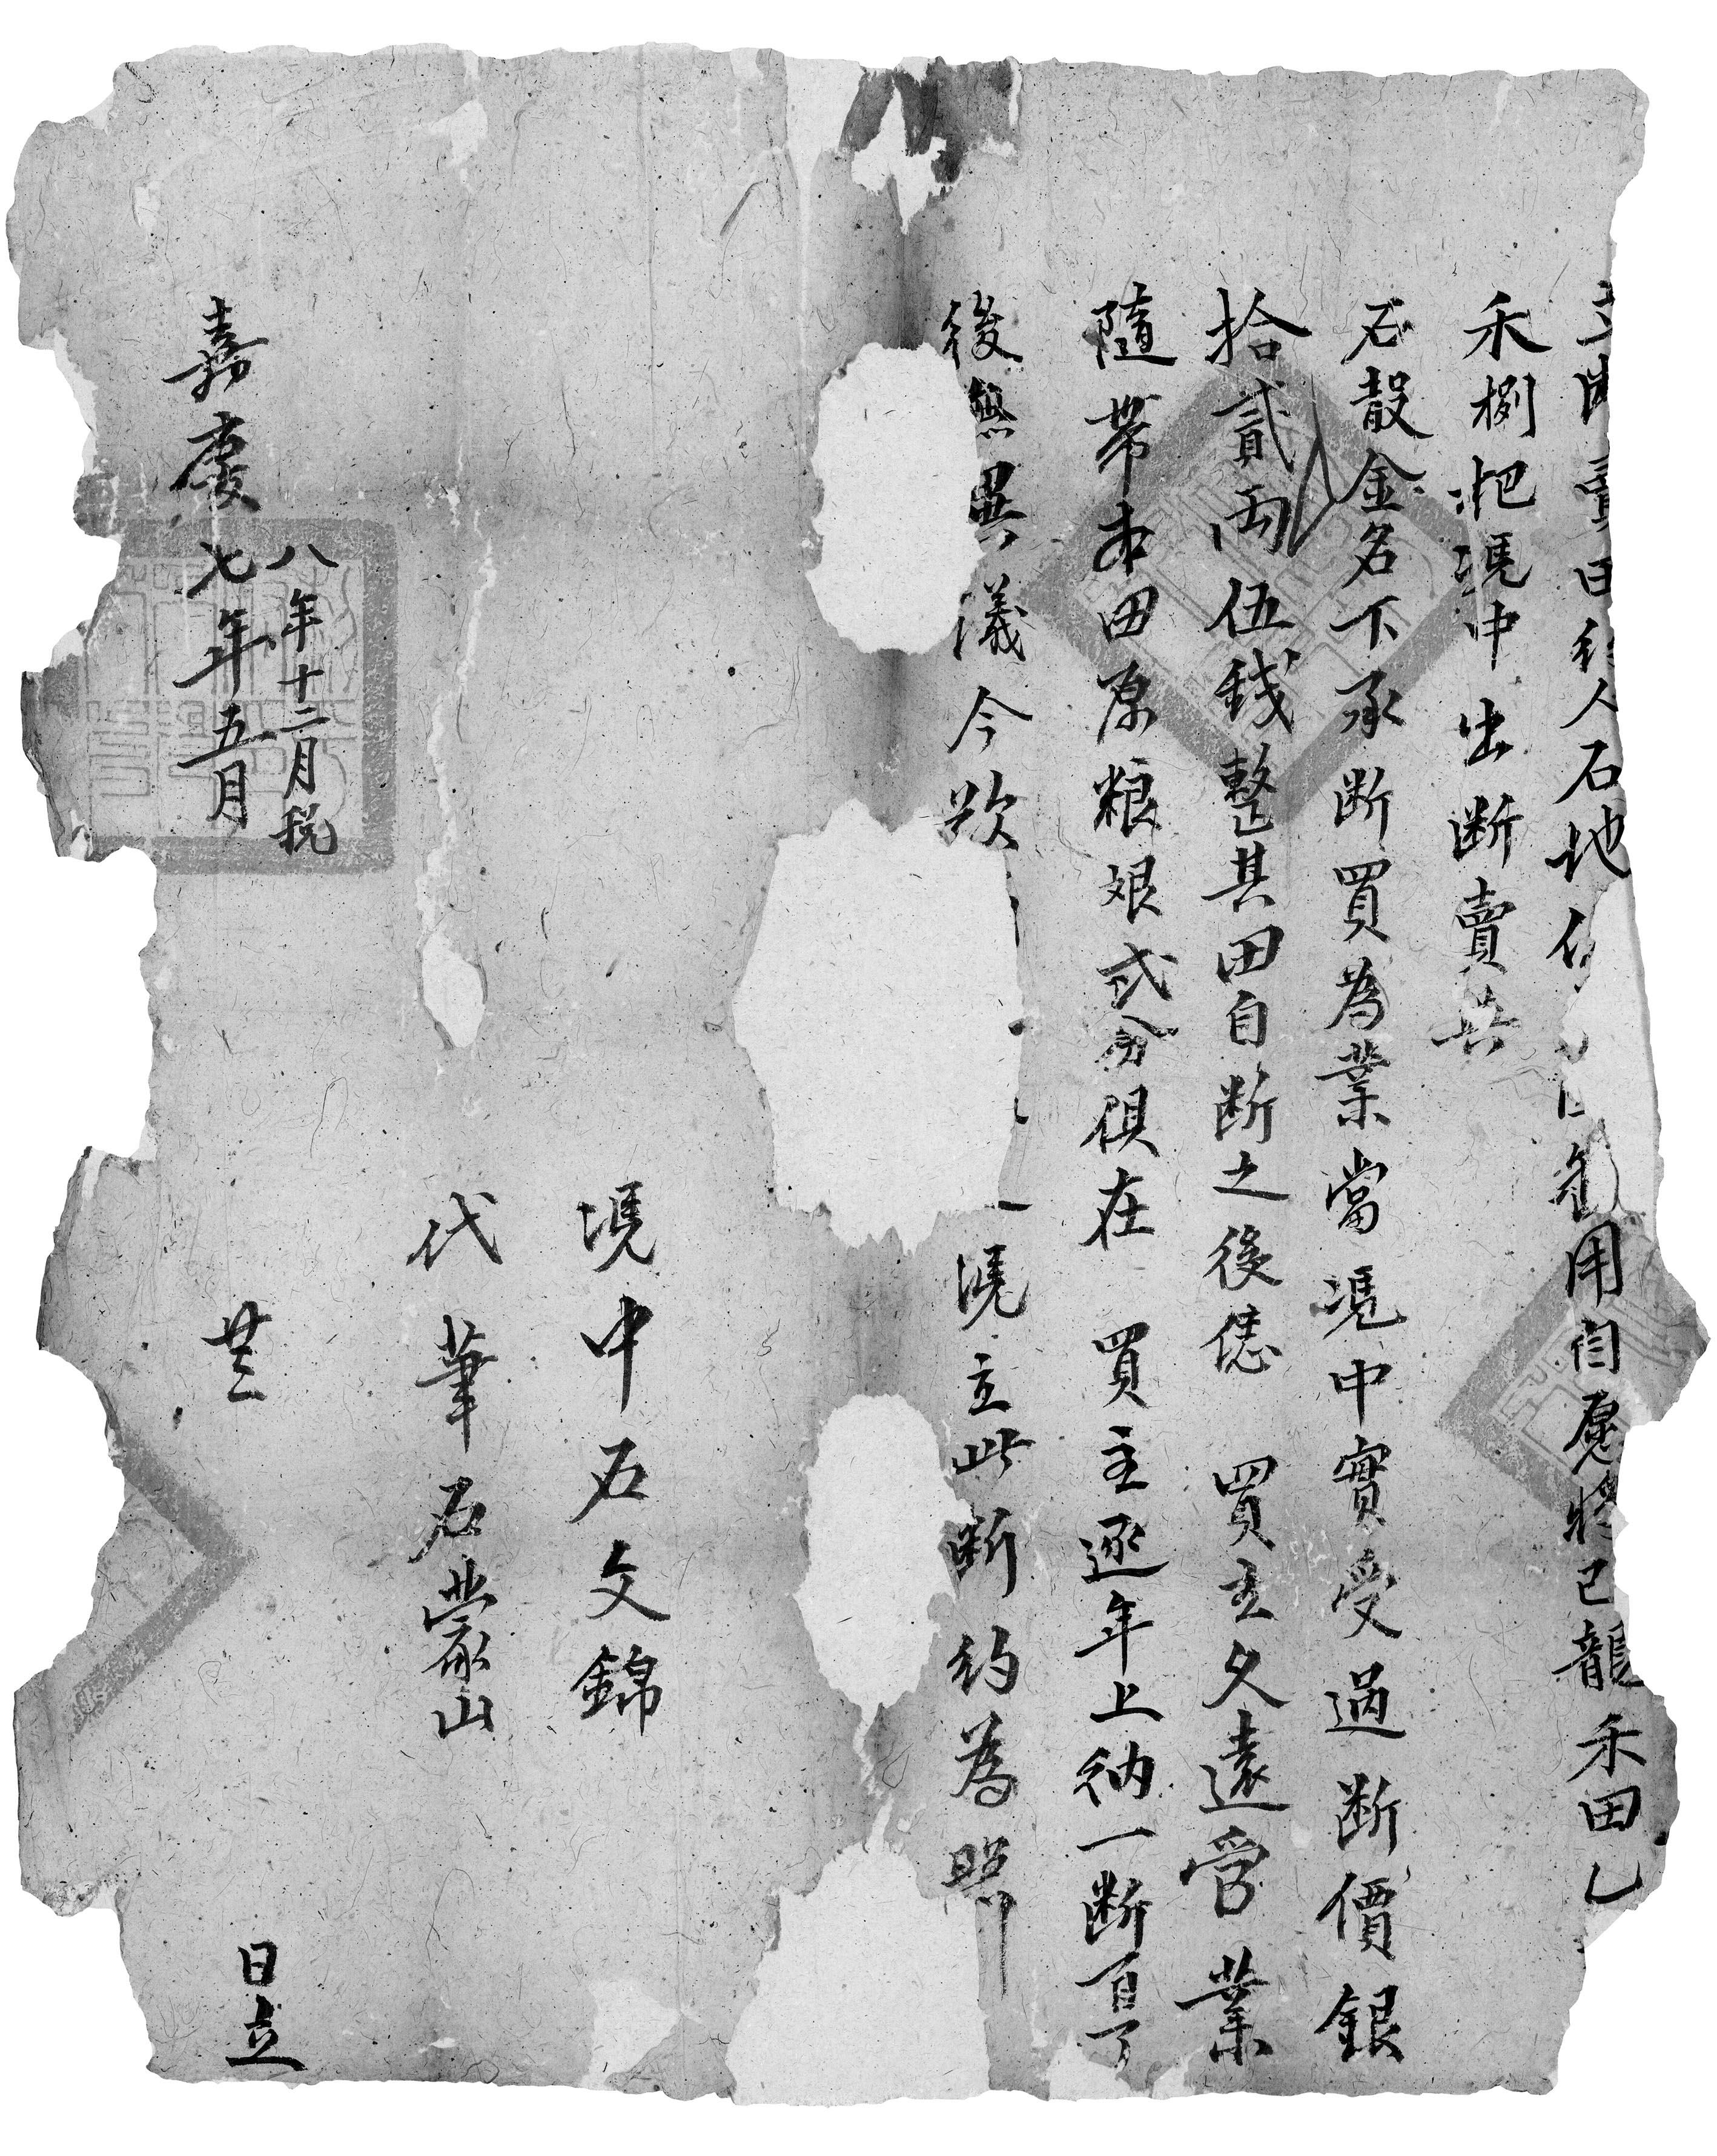 立斷賣田約人石地
用自愿將己龍禾田乙
禾捌把慿中出斷賣共
石㪚金名下承断買為業當慿中實受過断價銀
拾貳両伍錢整其田自断之後恁買主久遠管業
隨帶本田原粮艰弍分俱在買主逐年上納一断百了
後無異議今欲
慿立此断約為照
慿中石文錦
代筆石蒙山
八年十二月税
嘉慶七年五月廿二日立